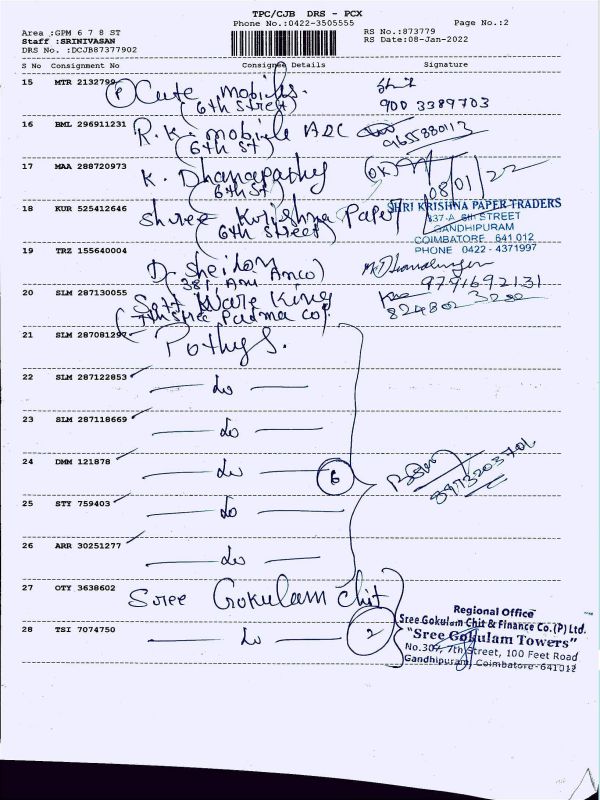 TPC/CJB DRS - PCX
Phone No.:0422-3505555
Page No.:2
Area :GPM 6 7 8 ST
RS No.:873779
Staff :SRINIVASAN
RS Date:08-Jan-2022
DRS No. :DCJB87377902
S No Consignment No Consignee Details Signature
15 MTR 2132799 Cute mobiles.
(6th Street)
900 3389703
16 BML 296911231 R.K. mobile ADC
(6th St)
965580113
17 MAA 288720973 K. Dhanapathy
(6th St)
(OK)
08/01/22
18 KUR 525412646 Shree Krishna Paper
(6th Street)
SHRI KRISHNA PAPER TRADERS
337-A 6th STREET
GANDHIPURAM
COIMBATORE 641 012
PHONE 0422 - 4371997
19 TRZ 155640004 D. Sheilan
9791692131
20 SLM 287130055 Soft Ware King
(7th Stree Padma Co).
824802 3282
21 SLM 287081297 Pothys.
22 SLM 287122853 — do —
23 SLM 287118669 — do —
24 DMM 121878 — do — 6
8973203701
25 STY 759403 — do —
26 ARR 30251277 — do —
27 OTY 3638602 Sree Gokulam Chit
28 TSI 7074750 — do — 2
Regional Office
Sree Gokulam Chit & Finance Co.(P) Ltd.
"Sree Gokulam Towers"
No.307, 7th Street, 100 Feet Road
Gandhipuram, Coimbatore-641012